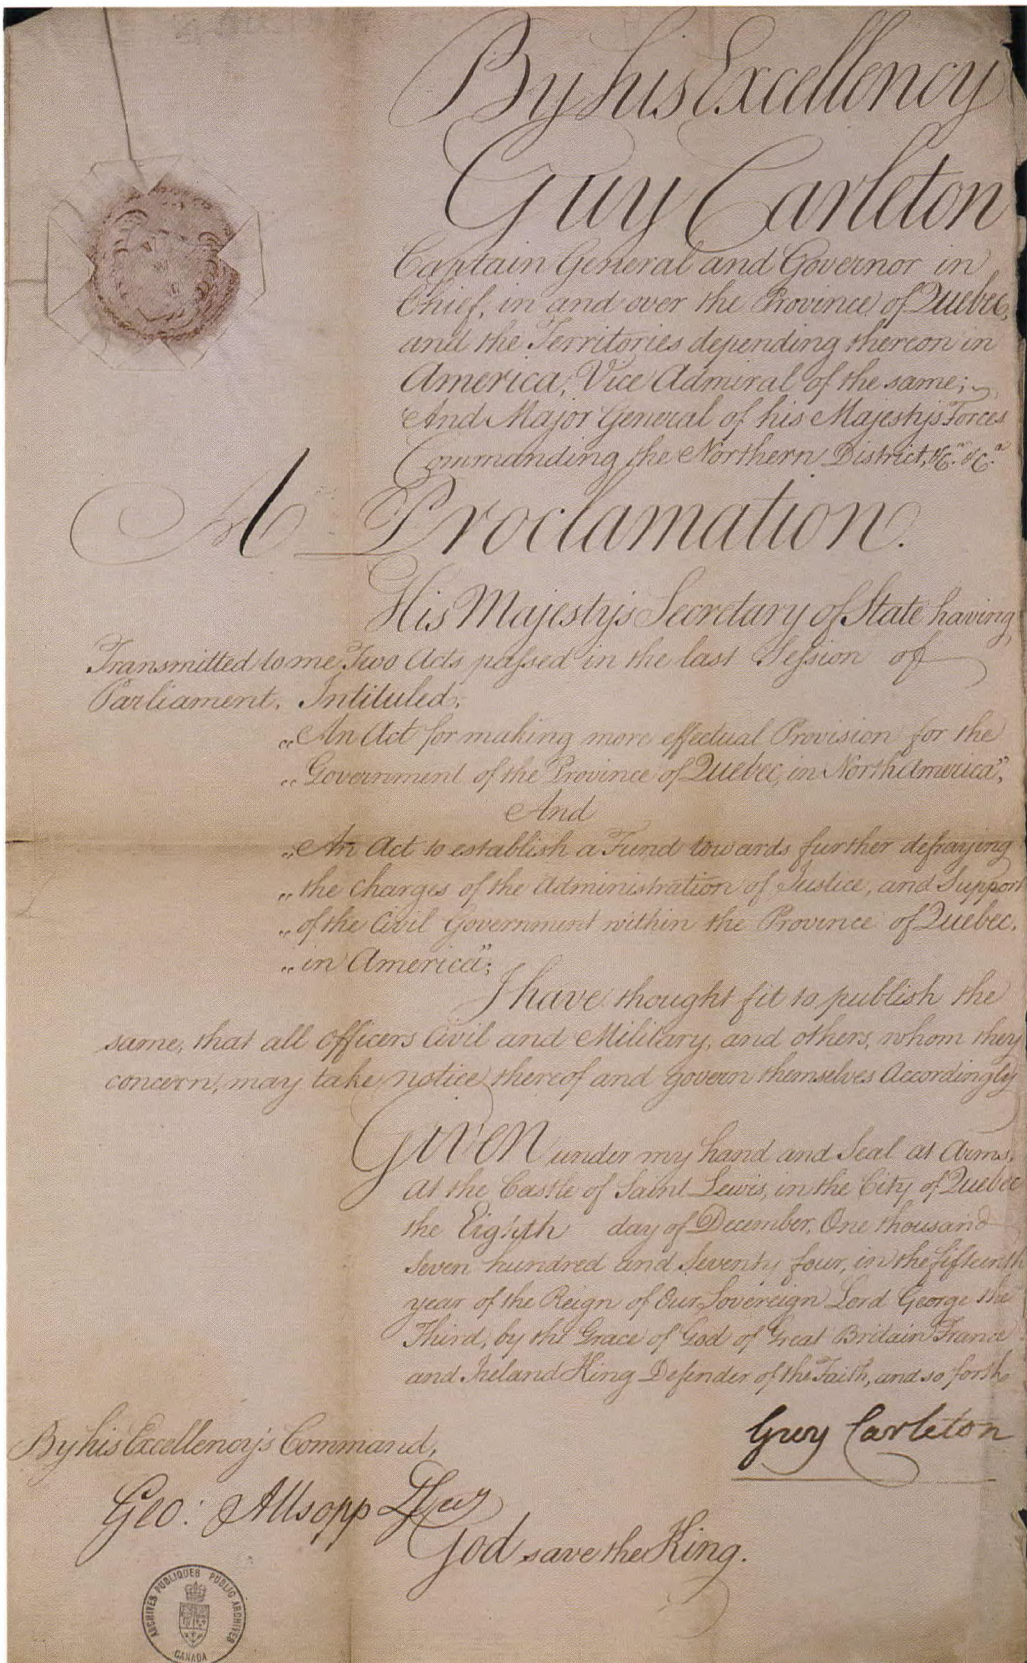 By his Excellency
Guy Carleton
Captain General and Governor in
Chief, in and over the Province of Quebec,
and the Territories depending thereon in
America, Vice Admiral of the same;
And Major General of his Majesty's Forces
Commanding the Northern District, &c.a &c.a
A Proclamation.
His Majesty's Secretary of State having
Transmitted to me Two Acts passed in the last Session of
Parliament, Intituled;
„An Act for making more effectual Provision for the
„Government of the Province of Quebec, in North America",
And
„An Act to establish a Fund towards further defraying
„the Charges of the Administration of Justice, and Support
„of the Civil Government within the Province of Quebec,
„in America";
I have thought fit to publish the
same, that all Officers Civil and Military, and others, whom they
concern, may take notice thereof and Govern themselves Accordingly
Given under my hand and Seal at Arms,
At the Castle of Saint Lewis, in the City of Quebec
the Eighth day of December, One thousand
Seven hundred and Seventy four, in the fifteenth
year of the Reign of Our Sovereign Lord George the
Third, by the Grace of God of Great Britain France
and Ireland King Defender of the Faith, and so forth
Guy Carleton
By his Excellency's Command,
Geo: Allsopp
God save the King.
ARCHIVES PUBLIQUES PUBLIC ARCHIVES
CANADA